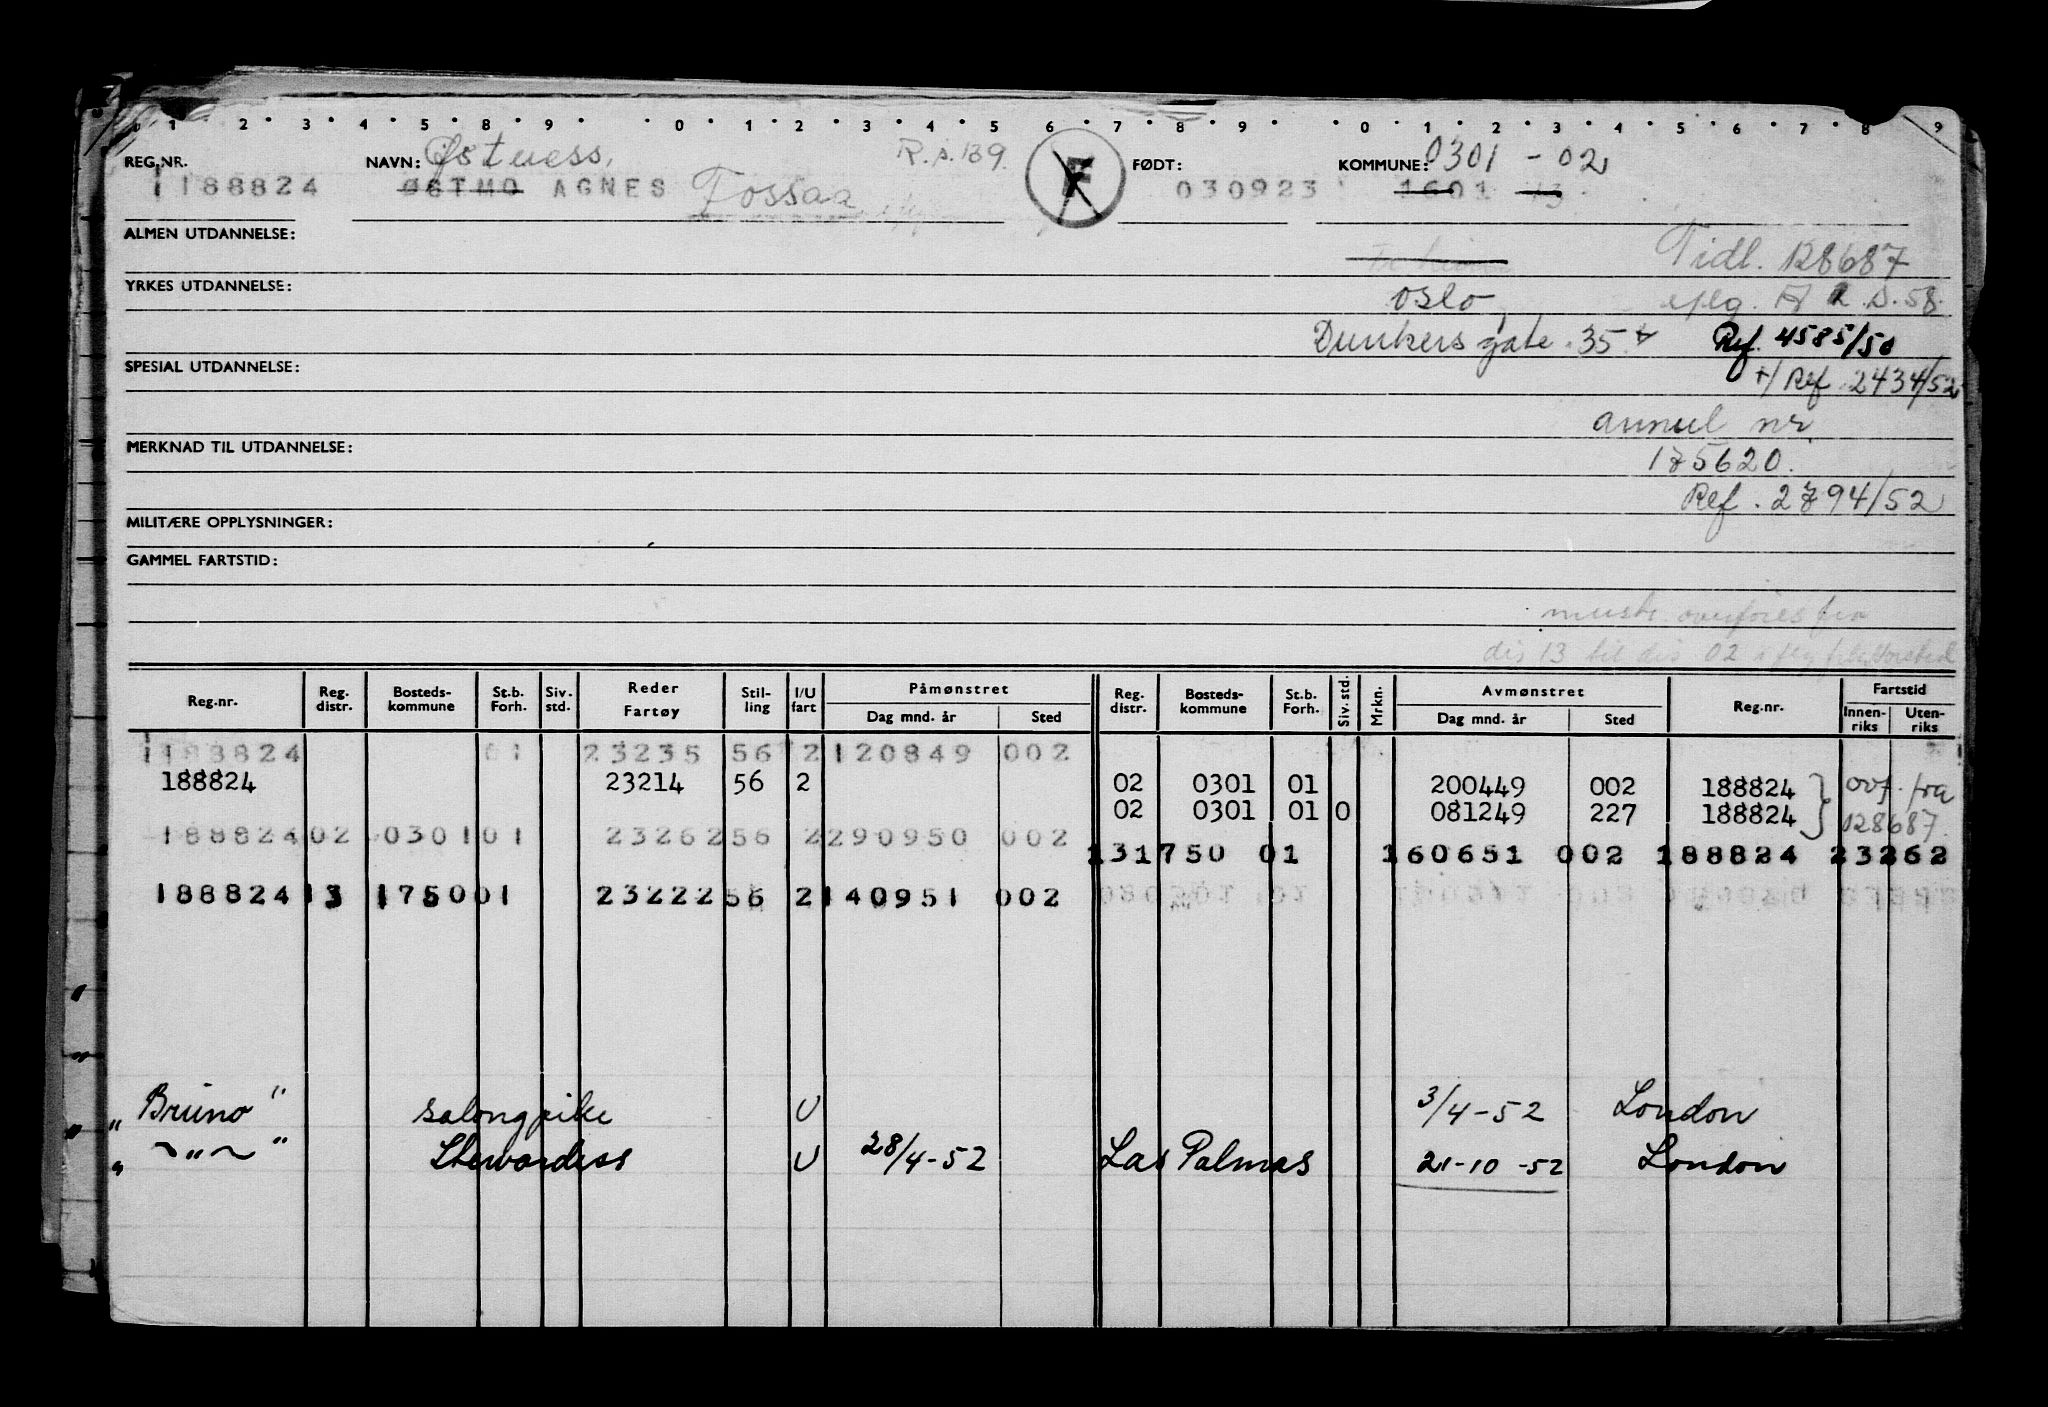 1 2 3 4 5 8 9 0 1 2 3 4 5 6 7 8 9 0 1 2 3 4 5 6 7 8 9
REG.NR. NAVN: Østness, R.s. 139. F FØDT: KOMMUNE: 0301 - 02
188824 ØSTMO AGNES Fossaa 030923 1601 13
ALMEN UTDANNELSE:
Tidl. 128687
YRKES UTDANNELSE: Oslo
Dunkers gate 35 Ref. 4585/50
SPESIAL UTDANNELSE: +/ Ref. 2434/52
annul nr.
MERKNAD TIL UTDANNELSE: 175620.
Ref. 2794/52
MILITÆRE OPPLYSNINGER:
GAMMEL FARTSTID:
overføres fra
dis 13 til dis 02
Reg.nr. Reg. distr. Bosteds-kommune St.b. Forh. Siv. std. Reder Fartøy Stil-ling I/U fart Påmønstret Dag mnd. år Sted Reg. distr. Bosteds-kommune St.b. Forh. Siv. std. Mrkn. Avmønstret Dag mnd. år Sted Reg.nr. Fartstid Innen-riks Uten-riks
188824 01 23235 56 2 120849 002
188824 23214 56 2 02 0301 01 200449 002 188824 } ovf. fra
02 0301 01 0 081249 227 188824 } 128687.
188824 02 0301 01 23262 56 2 290950 002
13 1750 01 160651 002 188824 23262
188824 13 1750 01 23222 56 2 140951 002
"Bruno" salongpike U 3/4-52 London
" ~"~ " Stewardess U 28/4-52 Las Palmas 21-10-52 London